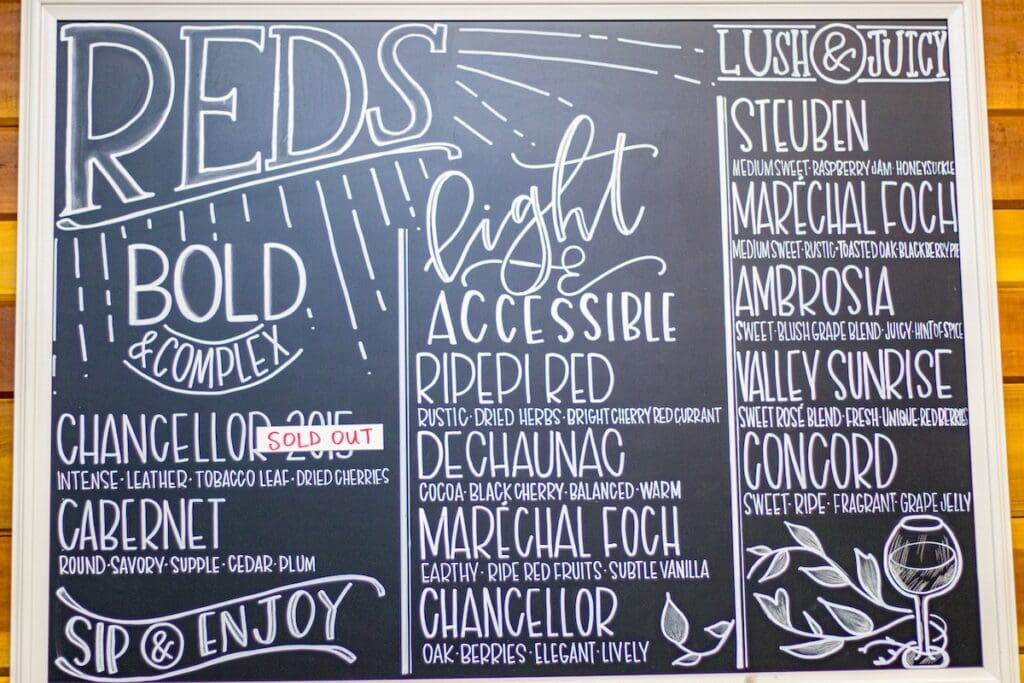 REDS
BOLD
& COMPLEX
CHANCELLOR 2015
SOLD OUT
INTENSE · LEATHER · TOBACCO LEAF · DRIED CHERRIES
CABERNET
ROUND · SAVORY · SUPPLE · CEDAR · PLUM
SIP & ENJOY
light
&
ACCESSIBLE
RIPEPI RED
RUSTIC · DRIED HERBS · BRIGHT CHERRY RED CURRANT
DECHAUNAC
COCOA · BLACK CHERRY · BALANCED · WARM
MARÉCHAL FOCH
EARTHY · RIPE RED FRUITS · SUBTLE VANILLA
CHANCELLOR
OAK · BERRIES · ELEGANT · LIVELY
LUSH & JUICY
STEUBEN
MEDIUM SWEET · RASPBERRY JAM · HONEYSUCKLE
MARÉCHAL FOCH
MEDIUM SWEET · RUSTIC · TOASTED OAK · BLACKBERRY PIE
AMBROSIA
SWEET · BLUSH GRAPE BLEND · JUICY · HINT OF SPICE
VALLEY SUNRISE
SWEET ROSÉ BLEND · FRESH · UNIQUE · RED BERRIES
CONCORD
SWEET · RIPE · FRAGRANT · GRAPE JELLY